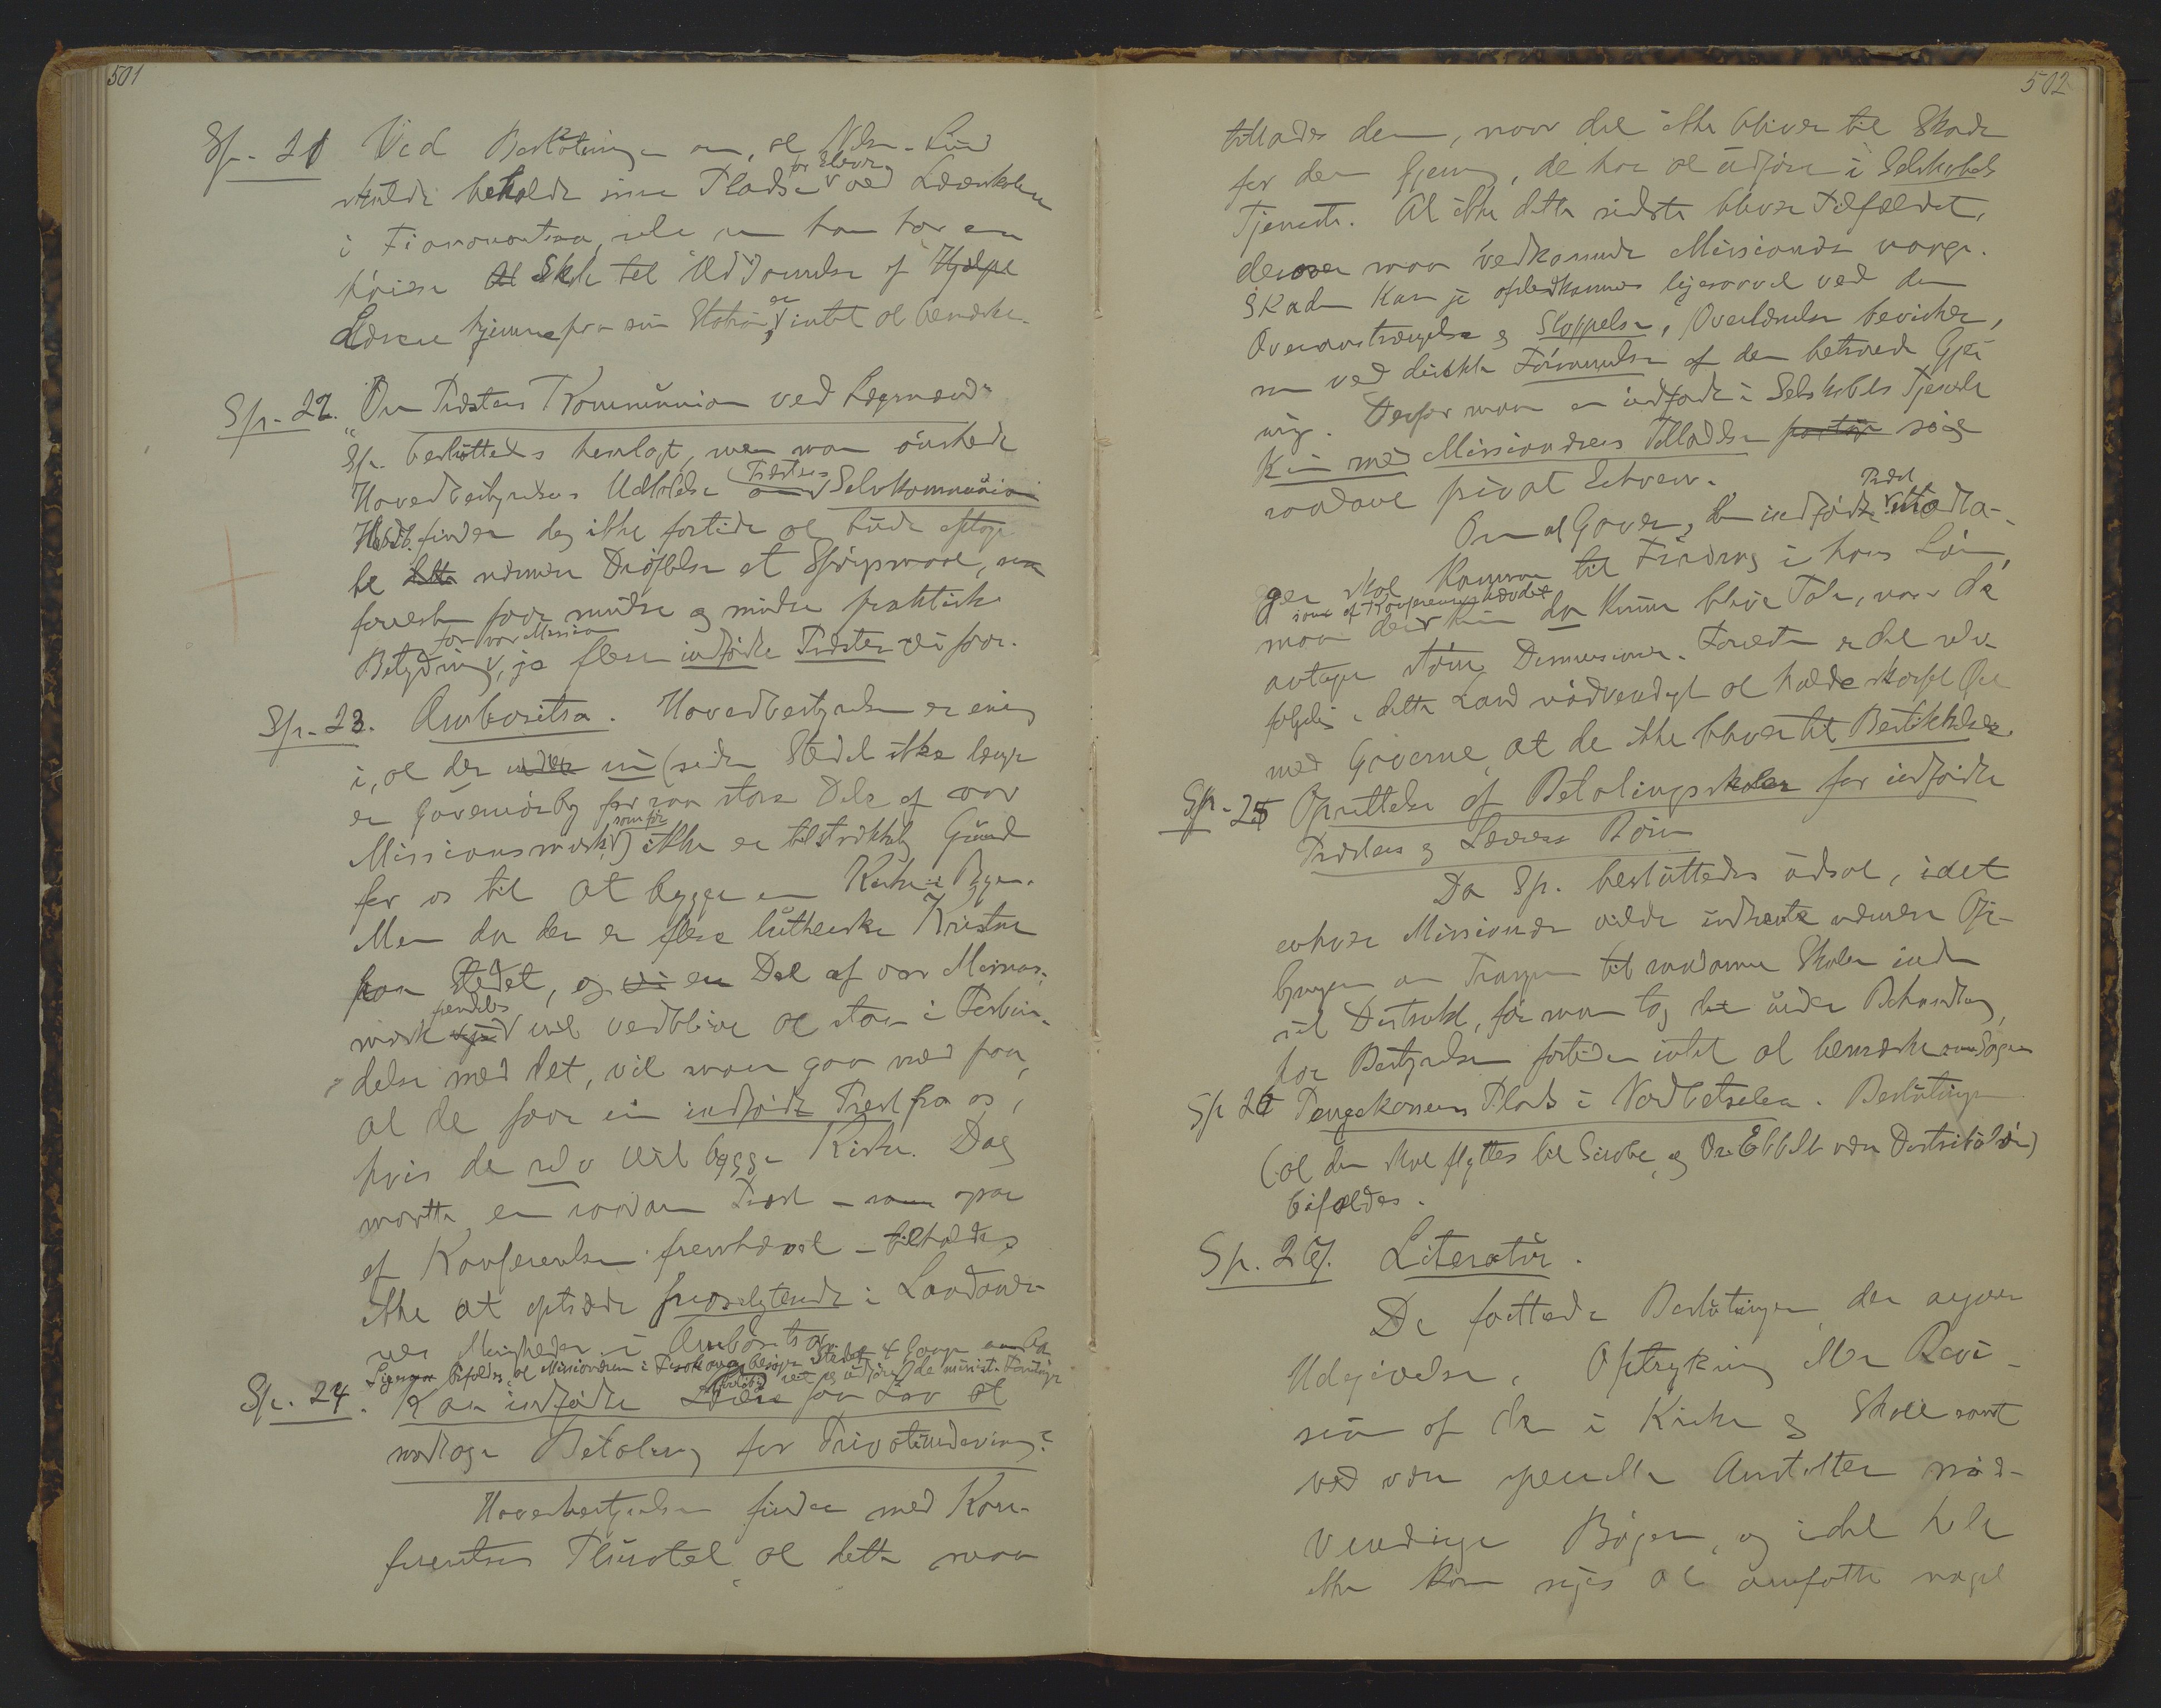 501
Sp. 21 Ved Beslutningen om, at Nilsen-Lund
for Elever
skulde beholde sine Pladse ved Lærerskolen
i Fianarantsoa, selv om han har en
høiere Skole til Uddannelse af Hjælpe
er
Lærere hjemme paa sin Station, intet at bemærke.
Sp. 22. "Om Præstens Kommunion ved Lægmænd"
Sp. besluttedes henlagt, men man ønskede
Præstens
Hovedbestyrelsens Udtalelse om Selvkommunion
Hbst. finder dog ikke fortiden at burde optage
til dette nærmere Drøftelse et Spørgsmaal, som
forresten faar mindre og mindre praktisk
for vor Mission
Betydning, jo flere indfødte Præster vi faar.
Sp. 23. Ambositra. Hovedbestyrelsen er enig
i, at der nu (siden Stedet ikke længer
er Guvernørsby for saa stor en Del af vor
som før
Missionsmark) ikke er tilstrækkelig Grund
for os til at bygge en Kirke i Byen.
Men da der er flere lutherske Kristne
paa Stedet, og en Del af vor Missions-
fremdeles
mark vil vedblive at staa i Forbin-
delse med det, vil man gaa med paa,
at de faar en indfødt Præst fra os,
hvis de selv vil bygge Kirke. Dog
maatte en saadan Præst - som ogsaa
af Konferensen fremhævet - tilholdes
ikke at optræde proselyterende i Londoner-
nes Menigheder i Ambositra.
Ligesaa bifaldes, at Missionæren i Fisakana besøger Stedet 4 Gange om Aaret
Sp. 24. Kan indfødte Lærere faa Lov at
modtage Betaling for Privatundervisning?
Hovedbestyrelsen finder med Kon-
ferentsens Pluralitet, at dette maa
502
tillades dem, naar det ikke bliver til Skade
for den Gjerning, de har at udføre i Selskabets
Tjeneste. At ikke dette sidste bliver Tilfældet,
derover maa vedkommende Missionær vaage.
Skaden kan jo afstedkommes ligesaavel ved den
Overanstrængelse og Sløvelse, Overlæsselse bevirker,
som ved direkte Forsømmelse af den betroede Gjer-
ning. Derfor maa en indfødt i Selskabets Tjeneste
kun med Missionærens Tilladelse søge
saadant privat Erhverv.
Præst
Om at Gaver, den indfødte modta-
ger skal komme til Fradrag i hans Løn,
som af Konferensen hævdet
maa der kun da kunne blive Tale, naar de
antager større Dimensioner. Forresten er det selv-
følgelig i dette Land nødvendigt at holde skarpt Øie
med Gaverne, at de ikke bliver til Bestikkelser.
Sp. 25 Oprettelse af Betalingsskoler for indfødte
Præsters og Læreres Børn
Da Sp. besluttedes udsat, idet
enhver Missionær vilde indhente nærmere Op-
lysninger om Trangen til saadanne Skoler inden
sit Distrikt, før man tog det under Behandling,
har Bestyrelsen fortiden intet at bemærke om Sagen
Sp 26 Pengekassens Plads i Nordbetsileo. Beslutningen
(at den skal flyttes til Sirabe, og Dr. Ebbell være Distriktskasserer)
bifaldes.
Sp. 27. Literatur.
De fattede Beslutninger, der angaar
Udgivelse, Optrykning eller Revi-
sion af de i Kirke og Skole samt
ved vore specielle Anstalter nød-
vendige Bøger, og i det hele
ikke kan siges at omfatte noget